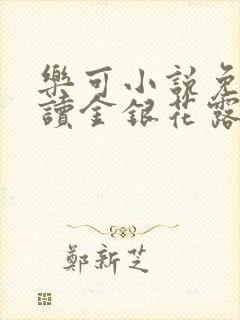 樂可小說免
讀金銀花露
鄭新芝